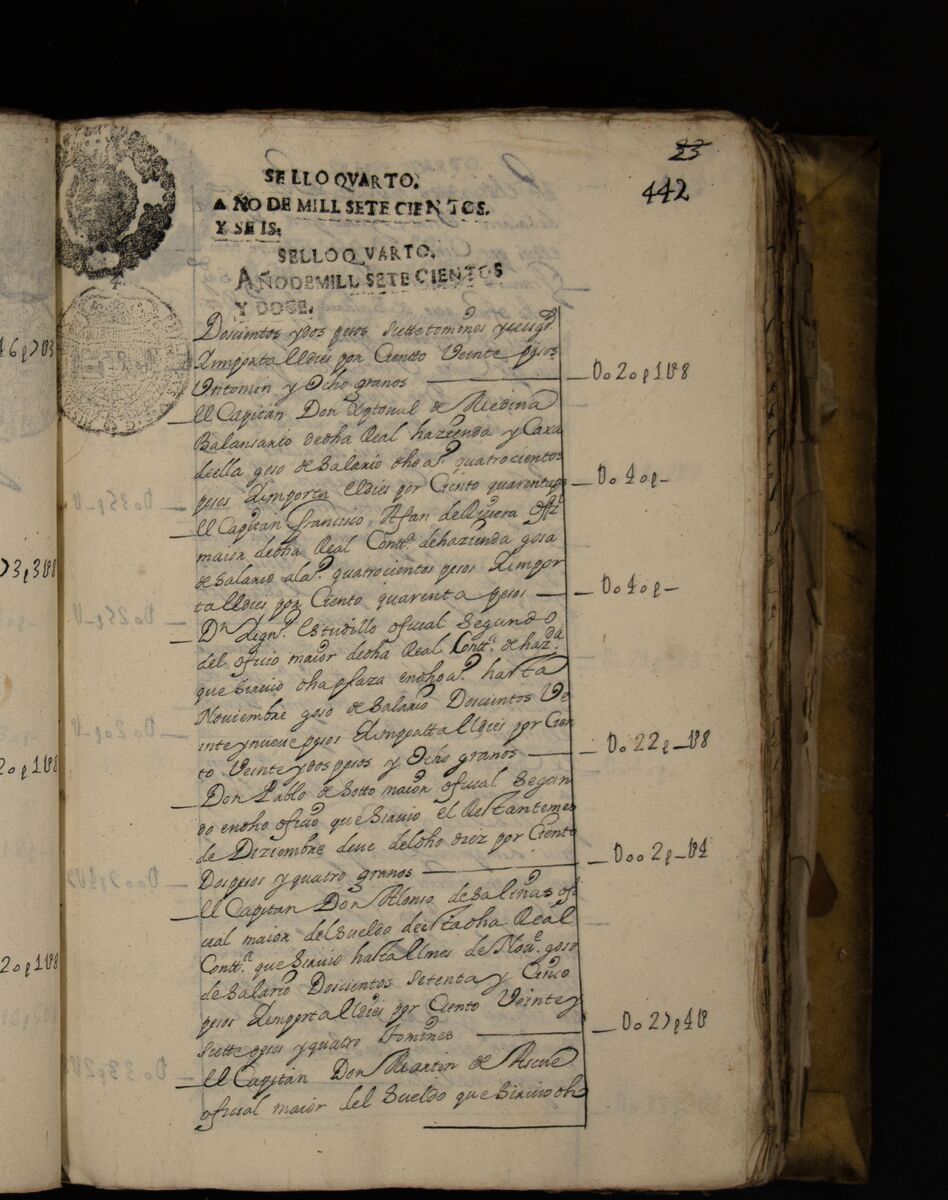 23
442
SELLO QVARTO.
AÑO DE MILL SETECIENTOS.
Y SEIS.
SELLO QVARTO.
AÑO DE MILL SETECIENTOS
Y DOCE.
Doscientos y dos pesos siette tomines y seis gr.s
Ymporta el dies por Ciento Veinte pesos
Untomin y Ocho granos — Uo2op1U8
el Capitan Don Xptoual de Medina
Balansario dedha Real hazienda y Caxa
deella goso de Salario dho a.o quatrocientos
pesos Ymporta el dies por Ciento quarentaps — Uo4op—
el Capitan Francisco Afan de Riuera ofi.l
maior dedha Real Contt.a dehazienda gosa
de Salario al a.o quatrocientos pesos Ympor
ta el dies por Ciento quarenta pesos — Uo4op—
Dn Ygn.o Estudillo oficial Segundo
del oficio maior dedha Real Contt.a de haz.da
que Siruio dha plaza endho a.o hasta
Nouiembre goso de Salario Doscientos Ve
inte y nueue pesos Ymportta el dies por Cien
to Veinte y dos pesos y Ocho granos — Uo22p—U8
Don Pablo de Sotto maior oficial Segun
do endho oficio que Siruio el Restante mes
de Diziembre deue deldho diez por Ciento
Dos pesos y quatro granos — Uoo2p—U4
el Capitan Don Alonso de Salinas ofi
cial maior del Sueldo deesta dha Real
Contt.a que Siruio hasta el mes de Nou.e goso
de Salario Doscientos Setenta y Cinco
pesos Ymporta el dies por Ciento Veinte y
siette pesos y quatro tomines — Uo27p4U
el Capitan Don Martin de
oficial maior del Sueldo que Siruio dh